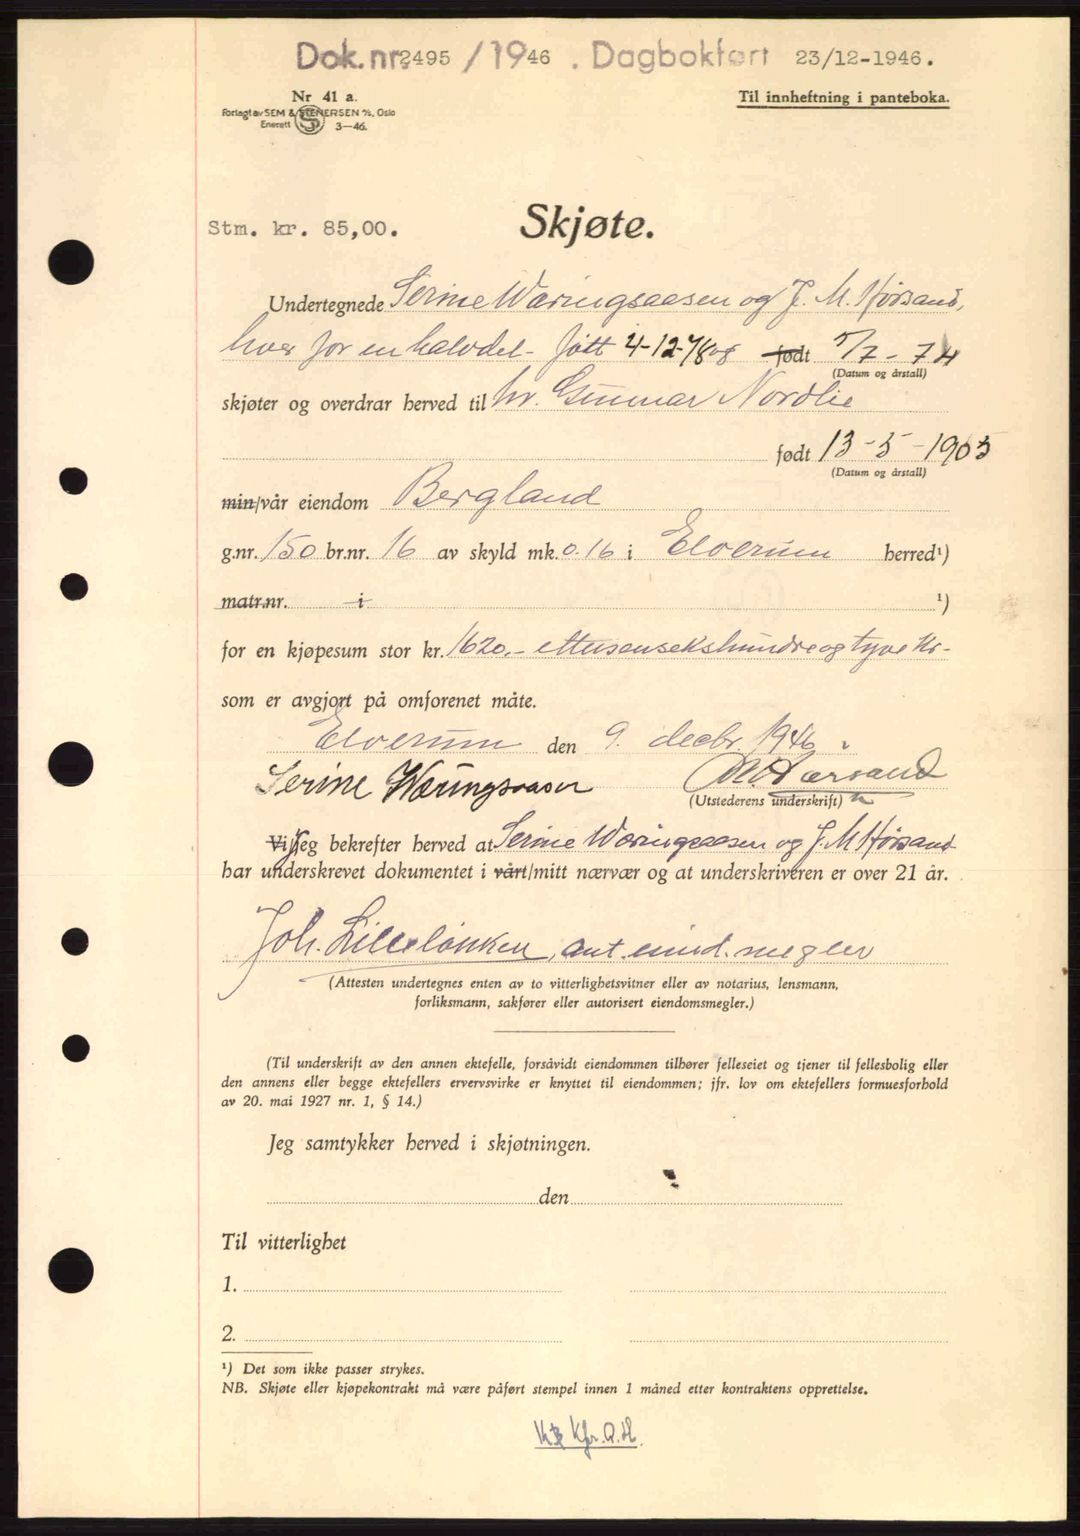 Dok.nr. 2495 /1946 . Dagbokført 23/12-1946.
Nr 41 a.
Til innheftning i panteboka.
Forlagt av SEM & STENERSEN A/S, Oslo
Enerett 3—46.
Stm. kr. 85,00.
Skjøte.
Undertegnede Serine Wæringsaasen og J. M. Hørsand,
hver for en halvdel - født 4-12-78 og født 5/7 - 74
(Datum og årstall)
skjøter og overdrar herved til hr. Gunnar Nordlie
født 13-5-1905
(Datum og årstall)
min/vår eiendom Bergland
g.nr. 150 br.nr. 16 av skyld mk. 0.16 i Elverum herred¹)
matr.nr. i ¹)
for en kjøpesum stor kr. 1620.- ettusensekshundreogtyve kr-
som er avgjort på omforenet måte.
Elverum den 9. decbr. 1946.
Serine Wæringsaasen J M Hørsand
(Utstederens underskrift)
Vi/jeg bekrefter herved at Serine Wæringsaasen og J. M Hørsand
har underskrevet dokumentet i vårt/mitt nærvær og at underskriveren er over 21 år.
Joh. Lilleløkken, aut. eiend. megler
(Attesten undertegnes enten av to vitterlighetsvitner eller av notarius, lensmann,
forliksmann, sakfører eller autorisert eiendomsmegler.)
(Til underskrift av den annen ektefelle, forsåvidt eiendommen tilhører felleseiet og tjener til fellesbolig eller
den annens eller begge ektefellers ervervsvirke er knyttet til eiendommen; jfr. lov om ektefellers formuesforhold
av 20. mai 1927 nr. 1, § 14.)
Jeg samtykker herved i skjøtningen.
den
Til vitterlighet
1.
2.
¹) Det som ikke passer strykes.
NB. Skjøte eller kjøpekontrakt må være påført stempel innen 1 måned etter kontraktens opprettelse.